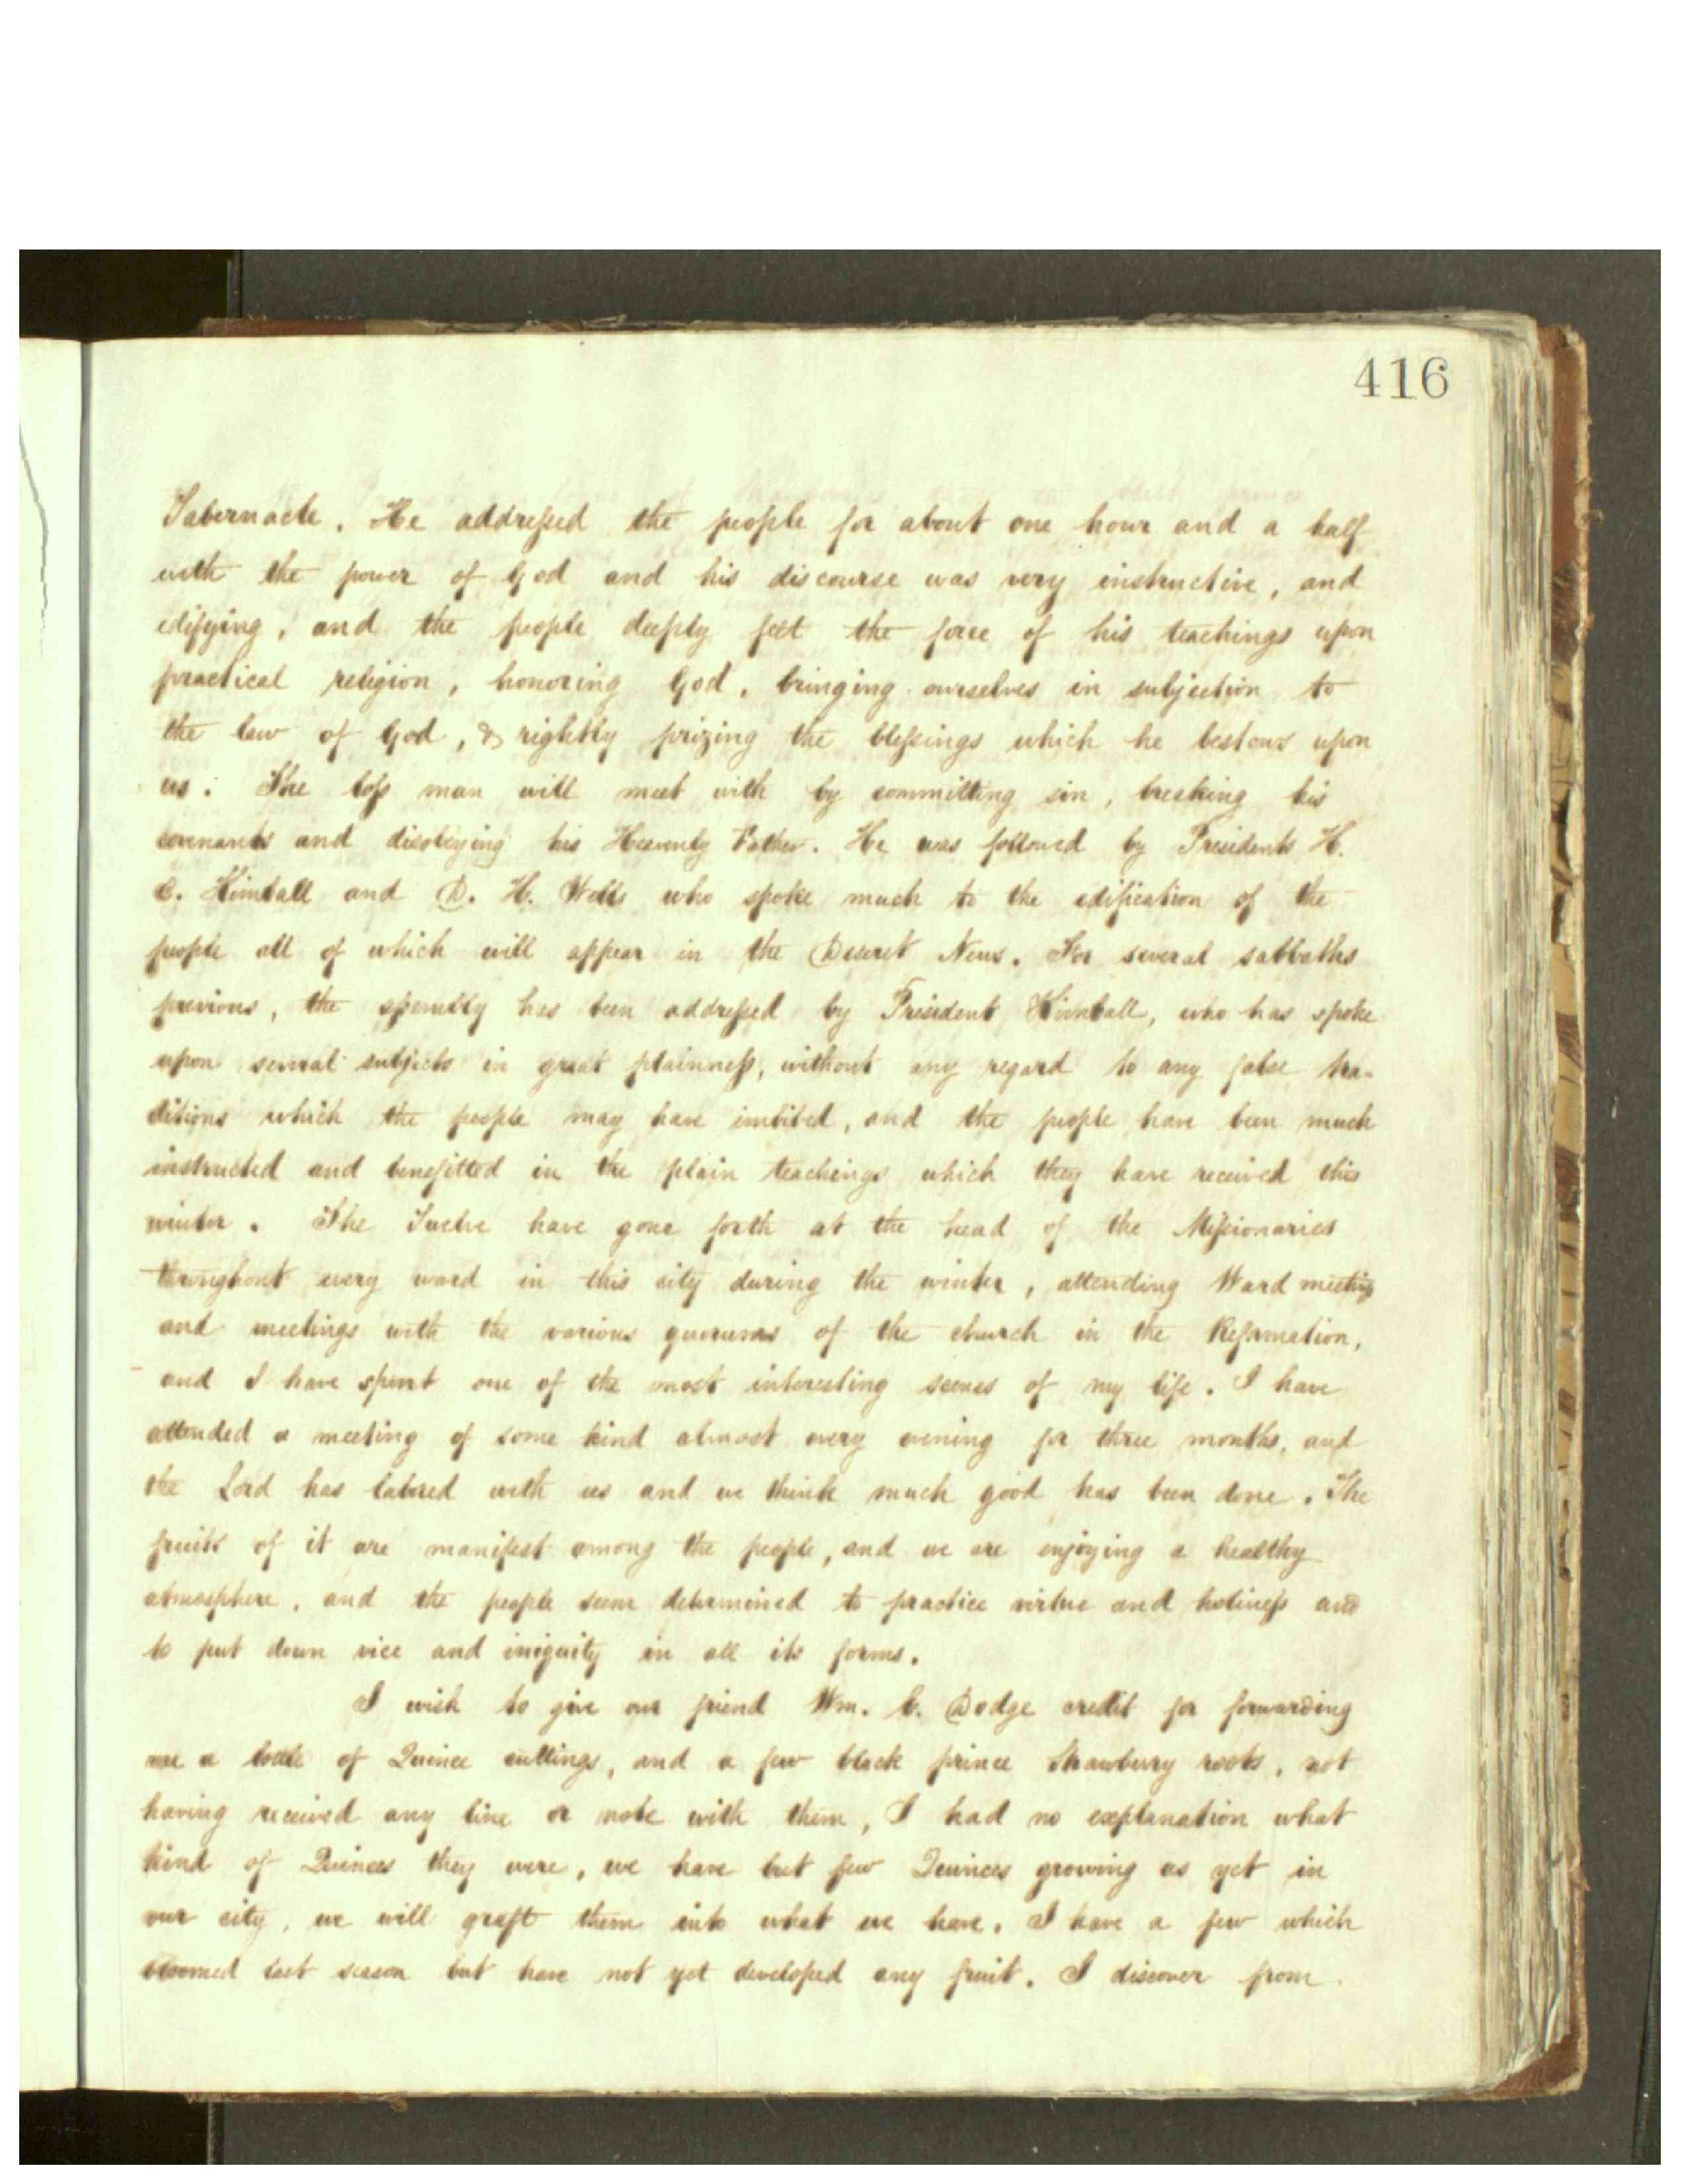 416
Tabernacle. He addressed the people for about one hour and a half
with the power of God and his discourse was very instructive, and
edifying, and the people deeply felt the force of his teachings upon
practical religion, honoring God, bringing ourselves in subjection to
the law of God, & rightly prizing the blessings which he bestows upon
us: The loss man will meet with by committing sin, breaking his
covenants and disobeying his Heavenly Father. He was followed by Presidents H.
C. Kimball and D. H. Wells who spoke much to the edification of the
people all of which will appear in the Deseret News. For several sabbaths
previous, the assembly has been addressed by President Kimball, who has spoke
upon several subjects in great plainness, without any regard to any false tra-
ditions which the people may have imbibed, and the people have been much
instructed and benefitted in the plain teachings which they have received this
winter. The Twelve have gone forth at the head of the Missionaries
throughout every ward in this city during the winter, attending Ward meeting
and meetings with the various quorums of the church in the Reformation,
and I have spent one of the most interesting scenes of my life. I have
attended a meeting of some kind almost every evening for three months, and
the Lord has labored with us and we think much good has been done. The
fruits of it are manifest among the people, and we are enjoying a healthy
atmosphere, and the people seem determined to practice virtue and holiness and
to put down vice and iniquity in all its forms.
I wish to give our friend Wm. C. Dodge credit for forwarding
me a bottle of Quince cuttings, and a few black prince Strawberry roots, not
having received any line or note with them, I had no explanation what
kind of Quinces they were, we have but few Quinces growing as yet in
our city, we will graft them into what we have. I have a few which
bloomed last season but have not yet developed any fruit. I discover from